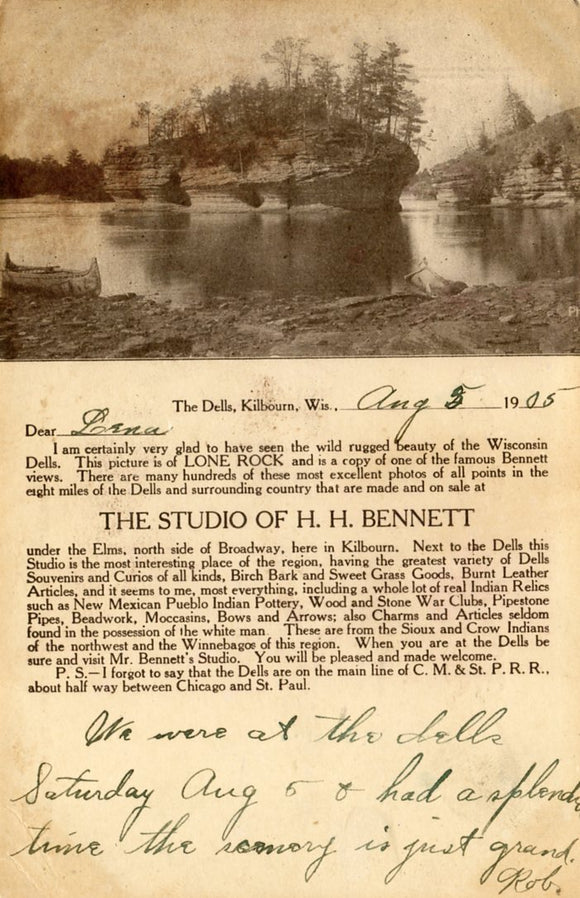 The Dells, Kilbourn, Wis., Aug 5 1905
Dear Lena
I am certainly very glad to have seen the wild rugged beauty of the Wisconsin
Dells. This picture is of LONE ROCK and is a copy of one of the famous Bennett
views. There are many hundreds of these most excellent photos of all points in the
eight miles of the Dells and surrounding country that are made and on sale at
THE STUDIO OF H. H. BENNETT
under the Elms, north side of Broadway, here in Kilbourn. Next to the Dells this
Studio is the most interesting place of the region, having the greatest variety of Dells
Souvenirs and Curios of all kinds, Birch Bark and Sweet Grass Goods, Burnt Leather
Articles, and it seems to me, most everything, including a whole lot of real Indian Relics
such as New Mexican Pueblo Indian Pottery, Wood and Stone War Clubs, Pipestone
Pipes, Beadwork, Moccasins, Bows and Arrows; also Charms and Articles seldom
found in the possession of the white man These are from the Sioux and Crow Indians
of the northwest and the Winnebagos of this region. When you are at the Dells be
sure and visit Mr. Bennett's Studio. You will be pleased and made welcome.
P. S.—I forgot to say that the Dells are on the main line of C. M. & St. P. R. R.,
about half way between Chicago and St. Paul.
We were at the dells
Saturday Aug 5 & had a splendid
time the scenery is just grand.
Rob.